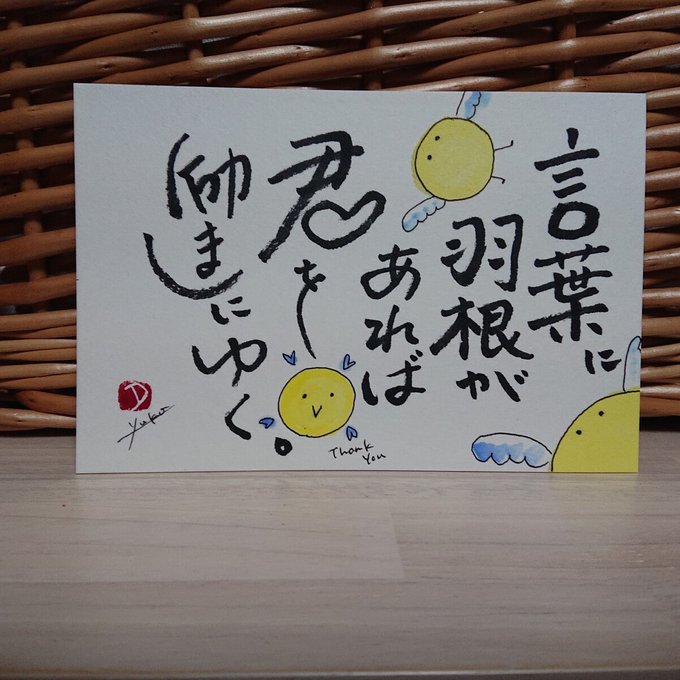 言葉に
羽根が
あれば
君♡を
励ましにゆく。
Thank
You
D
Yuko